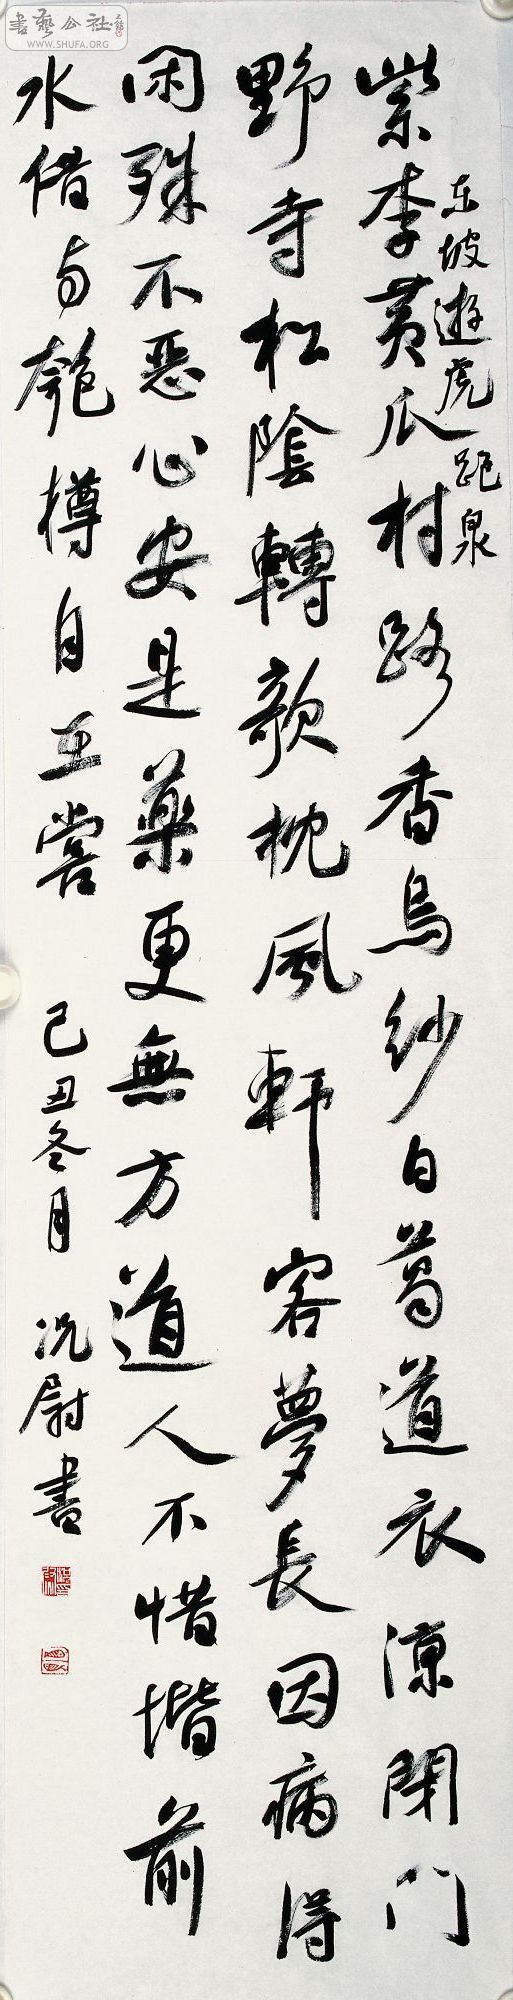 書藝公社
WWW.SHUFA.ORG
东坡遊虎跑泉
紫李黄瓜村路香烏紗白葛道衣涼閉門
野寺松陰轉欹枕風軒客夢長因病得
閑殊不惡心安是藥更無方道人不惜堦前
水借与匏樽自在嘗 己丑冬月 况尉書